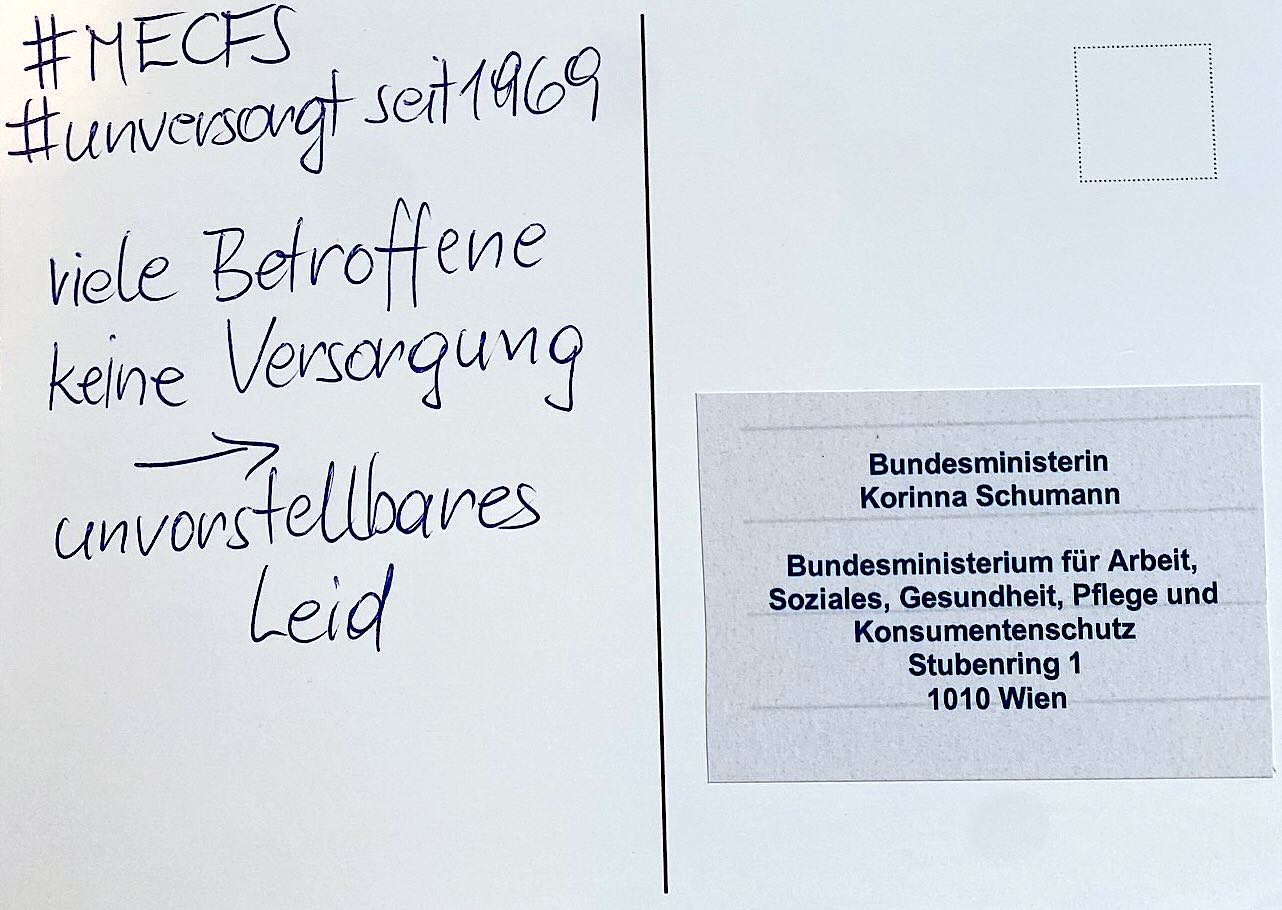 #MECFS
#unversorgt seit 1969
viele Betroffene
keine Versorgung
→
unvorstellbares
Leid
Bundesministerin
Korinna Schumann
Bundesministerium für Arbeit,
Soziales, Gesundheit, Pflege und
Konsumentenschutz
Stubenring 1
1010 Wien